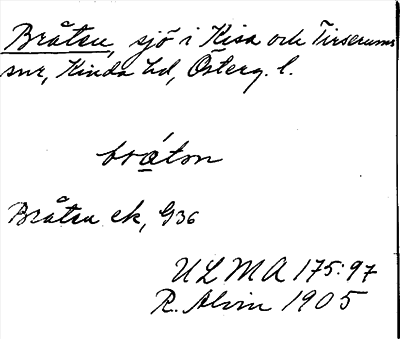 Bråtsu, sjö i Kisa och Tirserums
snr, Kinda hd, Österg. l.
Bråtsu ek, G36
ULMA 175:97
R. Alvin 1905